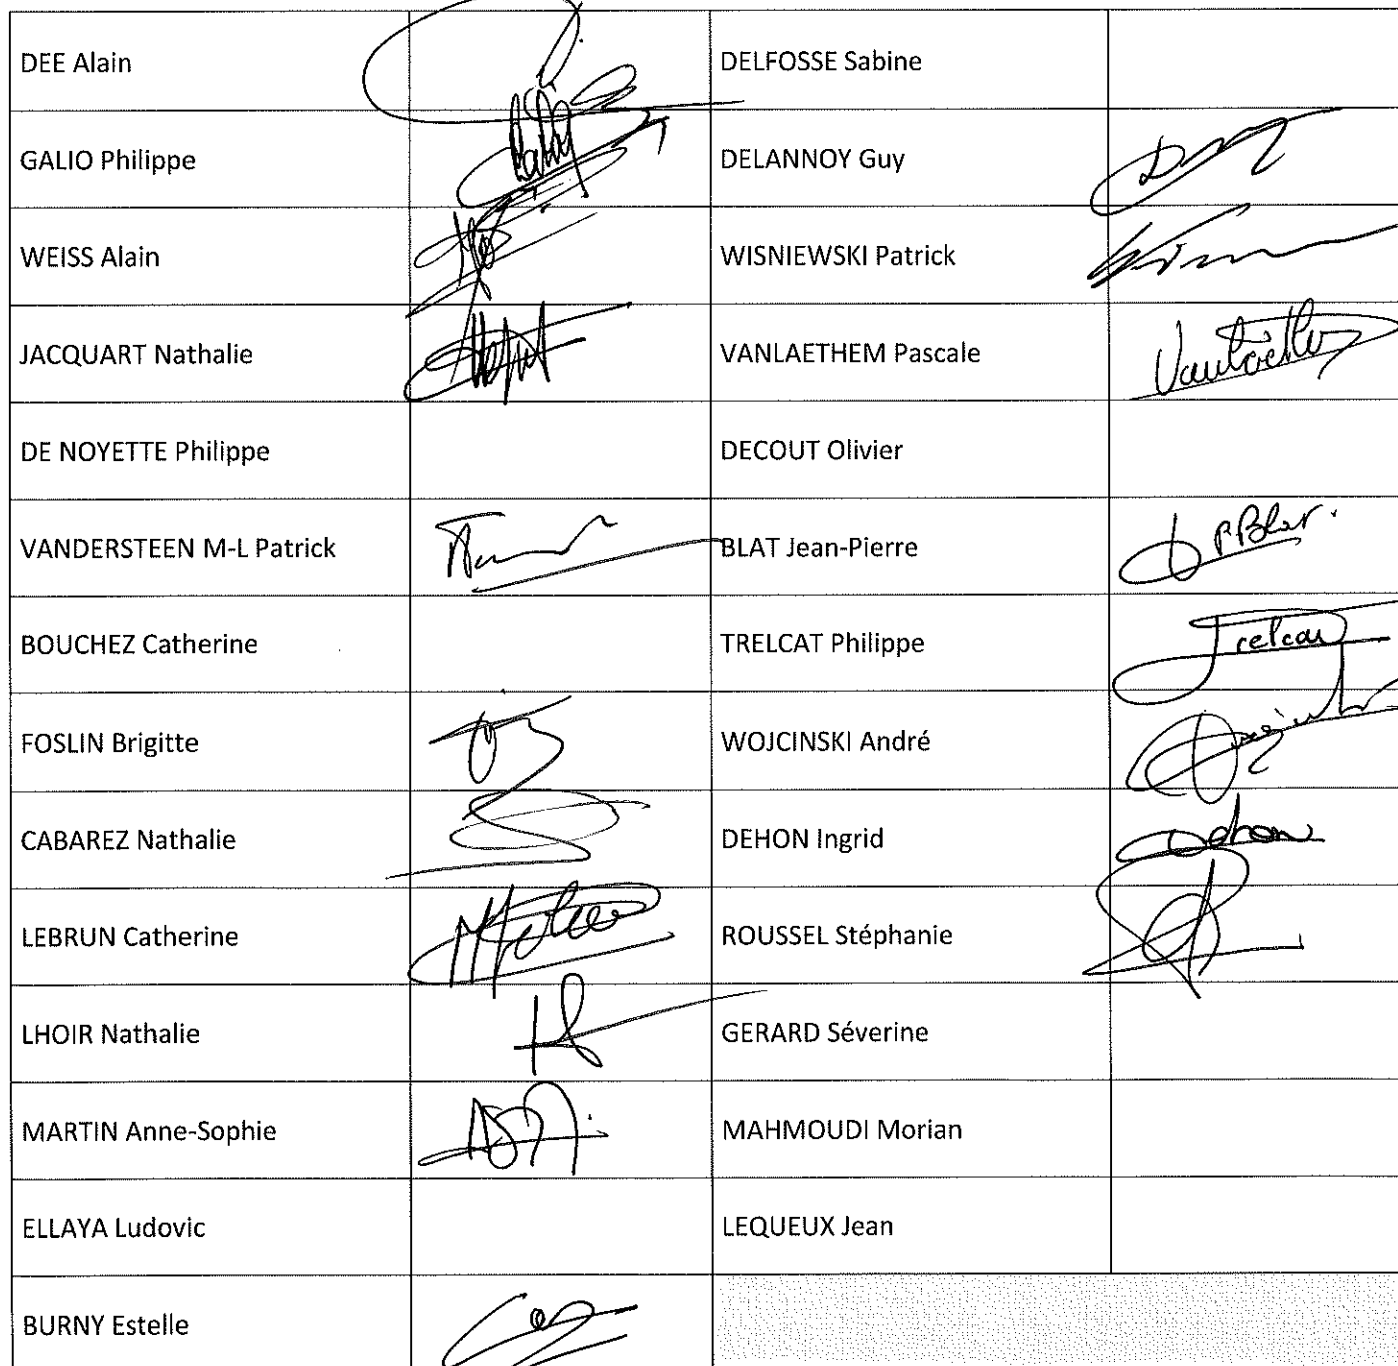 DEE Alain
DELFOSSE Sabine
GALIO Philippe
DELANNOY Guy
WEISS Alain
WISNIEWSKI Patrick
JACQUART Nathalie
VANLAETHEM Pascale
DE NOYETTE Philippe
DECOUT Olivier
VANDERSTEEN M-L Patrick
BLAT Jean-Pierre
BOUCHEZ Catherine
TRELCAT Philippe
FOSLIN Brigitte
WOJCINSKI André
CABAREZ Nathalie
DEHON Ingrid
Dehon
LEBRUN Catherine
ROUSSEL Stéphanie
LHOIR Nathalie
GERARD Séverine
MARTIN Anne-Sophie
MAHMOUDI Morian
ELLAYA Ludovic
LEQUEUX Jean
BURNY Estelle